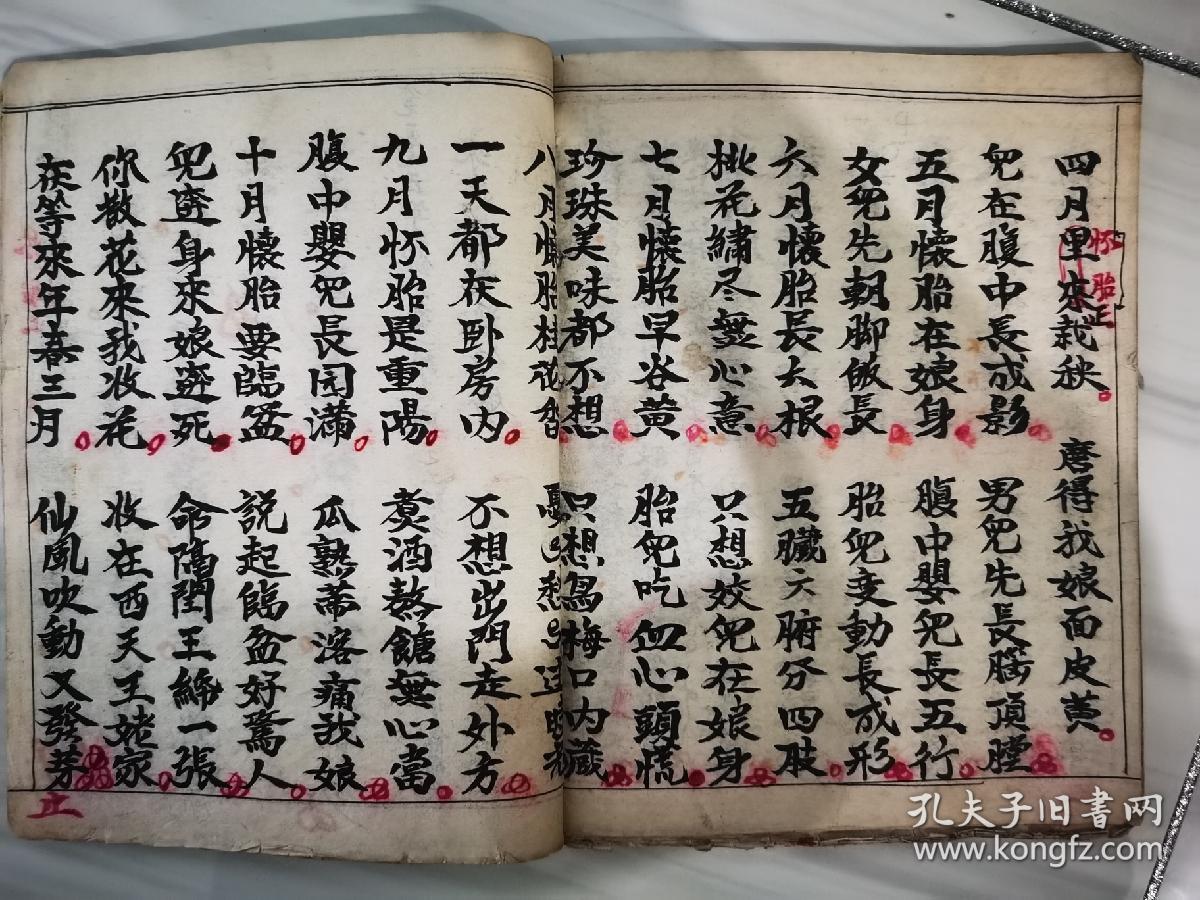 四月里來栽秧 磨得我娘面皮黄
怀胎正
兒在腹中長成影 男兒先長腦頂膛
五月懷胎在娘身 腹中嬰兒長五行
女兒先朝脚板長 胎兒变動長成形
六月懷胎長大根 五臟六腑分四肢
桃花繡尽無心意 只想姣兒在娘身
七月懷胎早谷黄 胎兒吃血心頭慌
珍珠美味都不想 只想烏梅口内藏
八月懷胎桂花香
一天都在卧房内 不想出門走外方
九月怀胎是重陽 煑酒熬餹無心當
腹中嬰兒長园滿 瓜熟蒂落痛我娘
十月懷胎要臨盆 説起臨盆好驚人
兒奔身來娘奔死 命隔閻王紙一張
你散花來我收花 收在西天王姥家
在等來年春三月 仙風吹動又發芽
止
孔夫子旧書网
www.kongfz.com